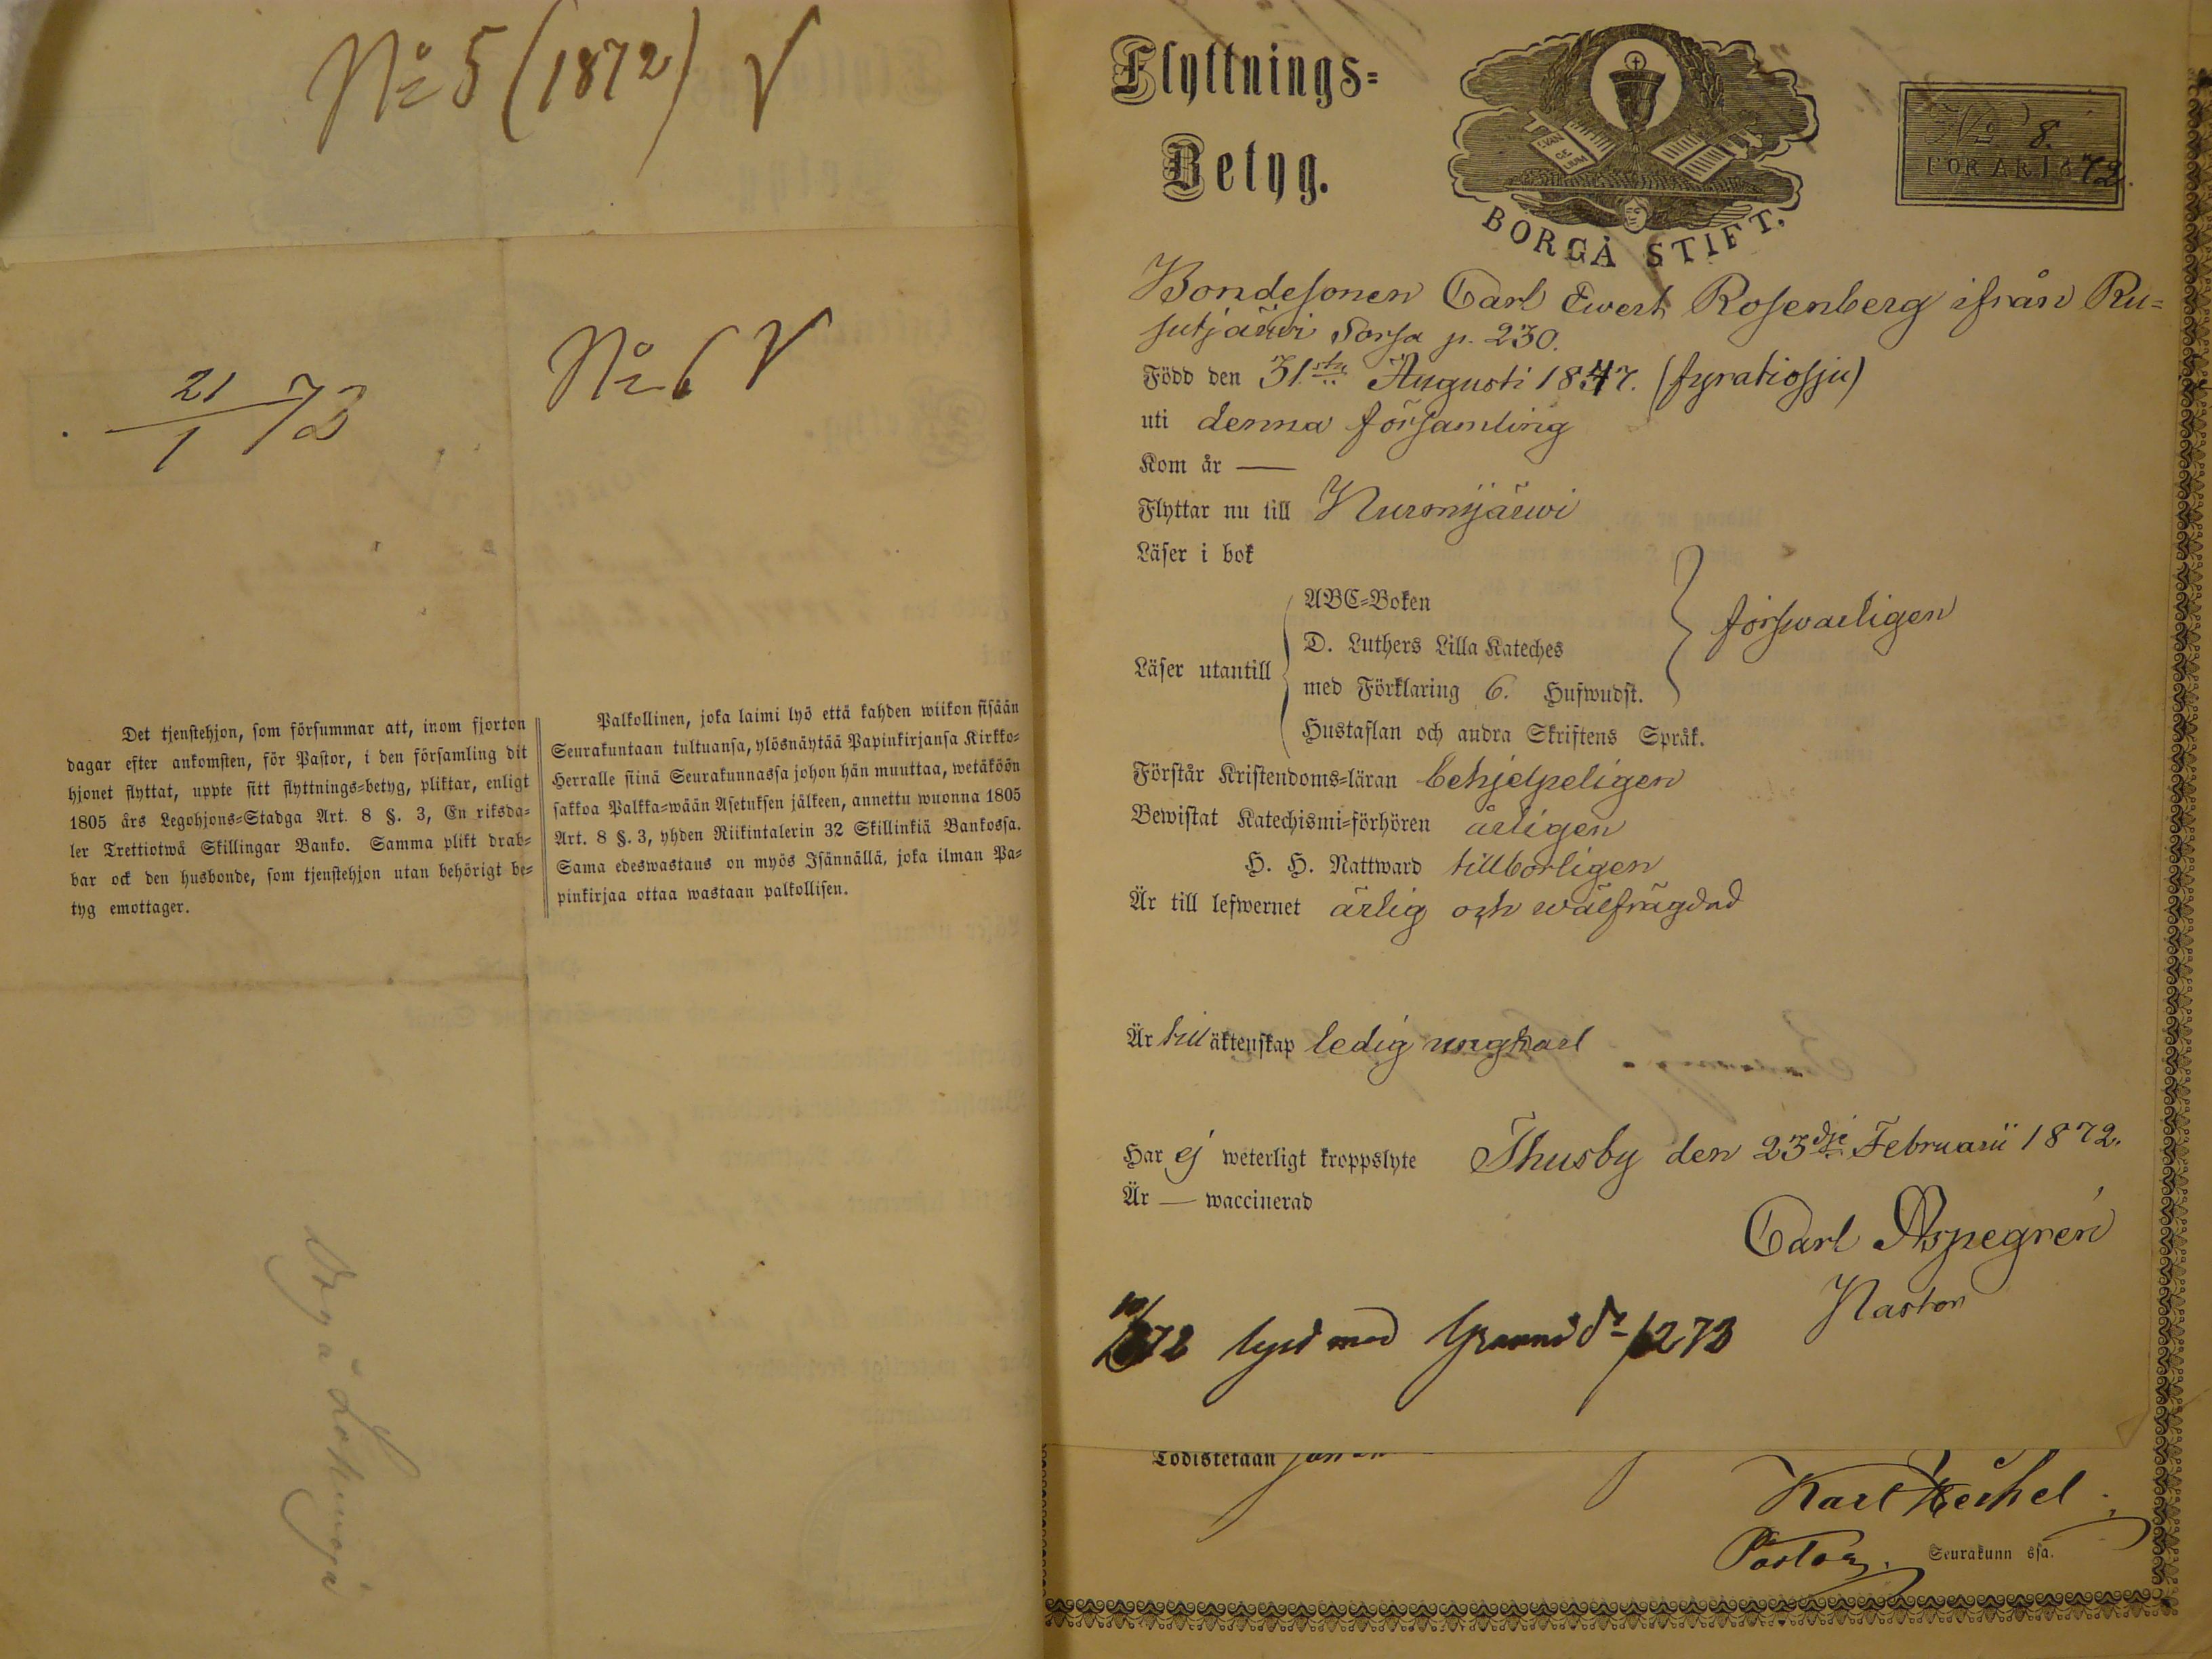 № 5 (1872) V
21/1 73
№ 6 V
Det tjenstehjon, som försummar att, inom fjorton
dagar efter ankomsten, för Pastor, i den församling dit
hjonet flyttat, uppte sitt flyttnings=betyg, pliktar, enligt
1805 års Legohjons=Stadga Art. 8 §. 3, En riksda=
ler Trettiotwå Skillingar Banko. Samma plikt drab=
bar ock den husbonde, som tjenstehjon utan behörigt be=
tyg emottager.
Palkollinen, joka laimi lyö että kahden wiikon sisään
Seurakuntaan tultuansa, ylösnäytää Papinkirjansa Kirkko=
Herralle siinä Seurakunnassa johon hän muuttaa, wetäköön
sakkoa Palkka=wään Asetuksen jälkeen, annettu wuonna 1805
Art. 8 §. 3, yhden Riikintalerin 32 Skillinkiä Bankossa.
Sama edeswastaus on myös Isännällä, joka ilman Pa=
pinkirjaa ottaa wastaan palkollisen.
Flyttnings=
Betyg.
EVAN
GE
LIUM
BORGÅ STIFT.
No 8.
FÖR ÅR 1872.
Bondesonen Carl Ewert Rosenberg ifrån Ru=
sutjärwi Sorsa p. 230.
Född den 31sta Augusti 1847. (fyratiosju)
uti denna församling
Kom år —
Flyttar nu till Nurmijärwi
Läser i bok
Läser utantill
ABC=Boken
D. Luthers Lilla Kateches
med Förklaring 6. Hufwudst.
Hustaflan och andra Skriftens Språk.
förswarligen
Förstår Kristendoms=läran behjelpeligen
Bewistat Katechismi=förhören årligen
H. H. Nattward tillbörligen
Är till lefwernet ärlig och wälfrägdad
Är till äktenskap ledig ungkarl
Har ej weterligt kroppslyte
Thusby den 23dje Februarii 1872.
Är — waccinerad
Carl Aspegren
Pastor
72 lyst med
Todistetaan
Karl
Pastor. Seurakunn ssa.